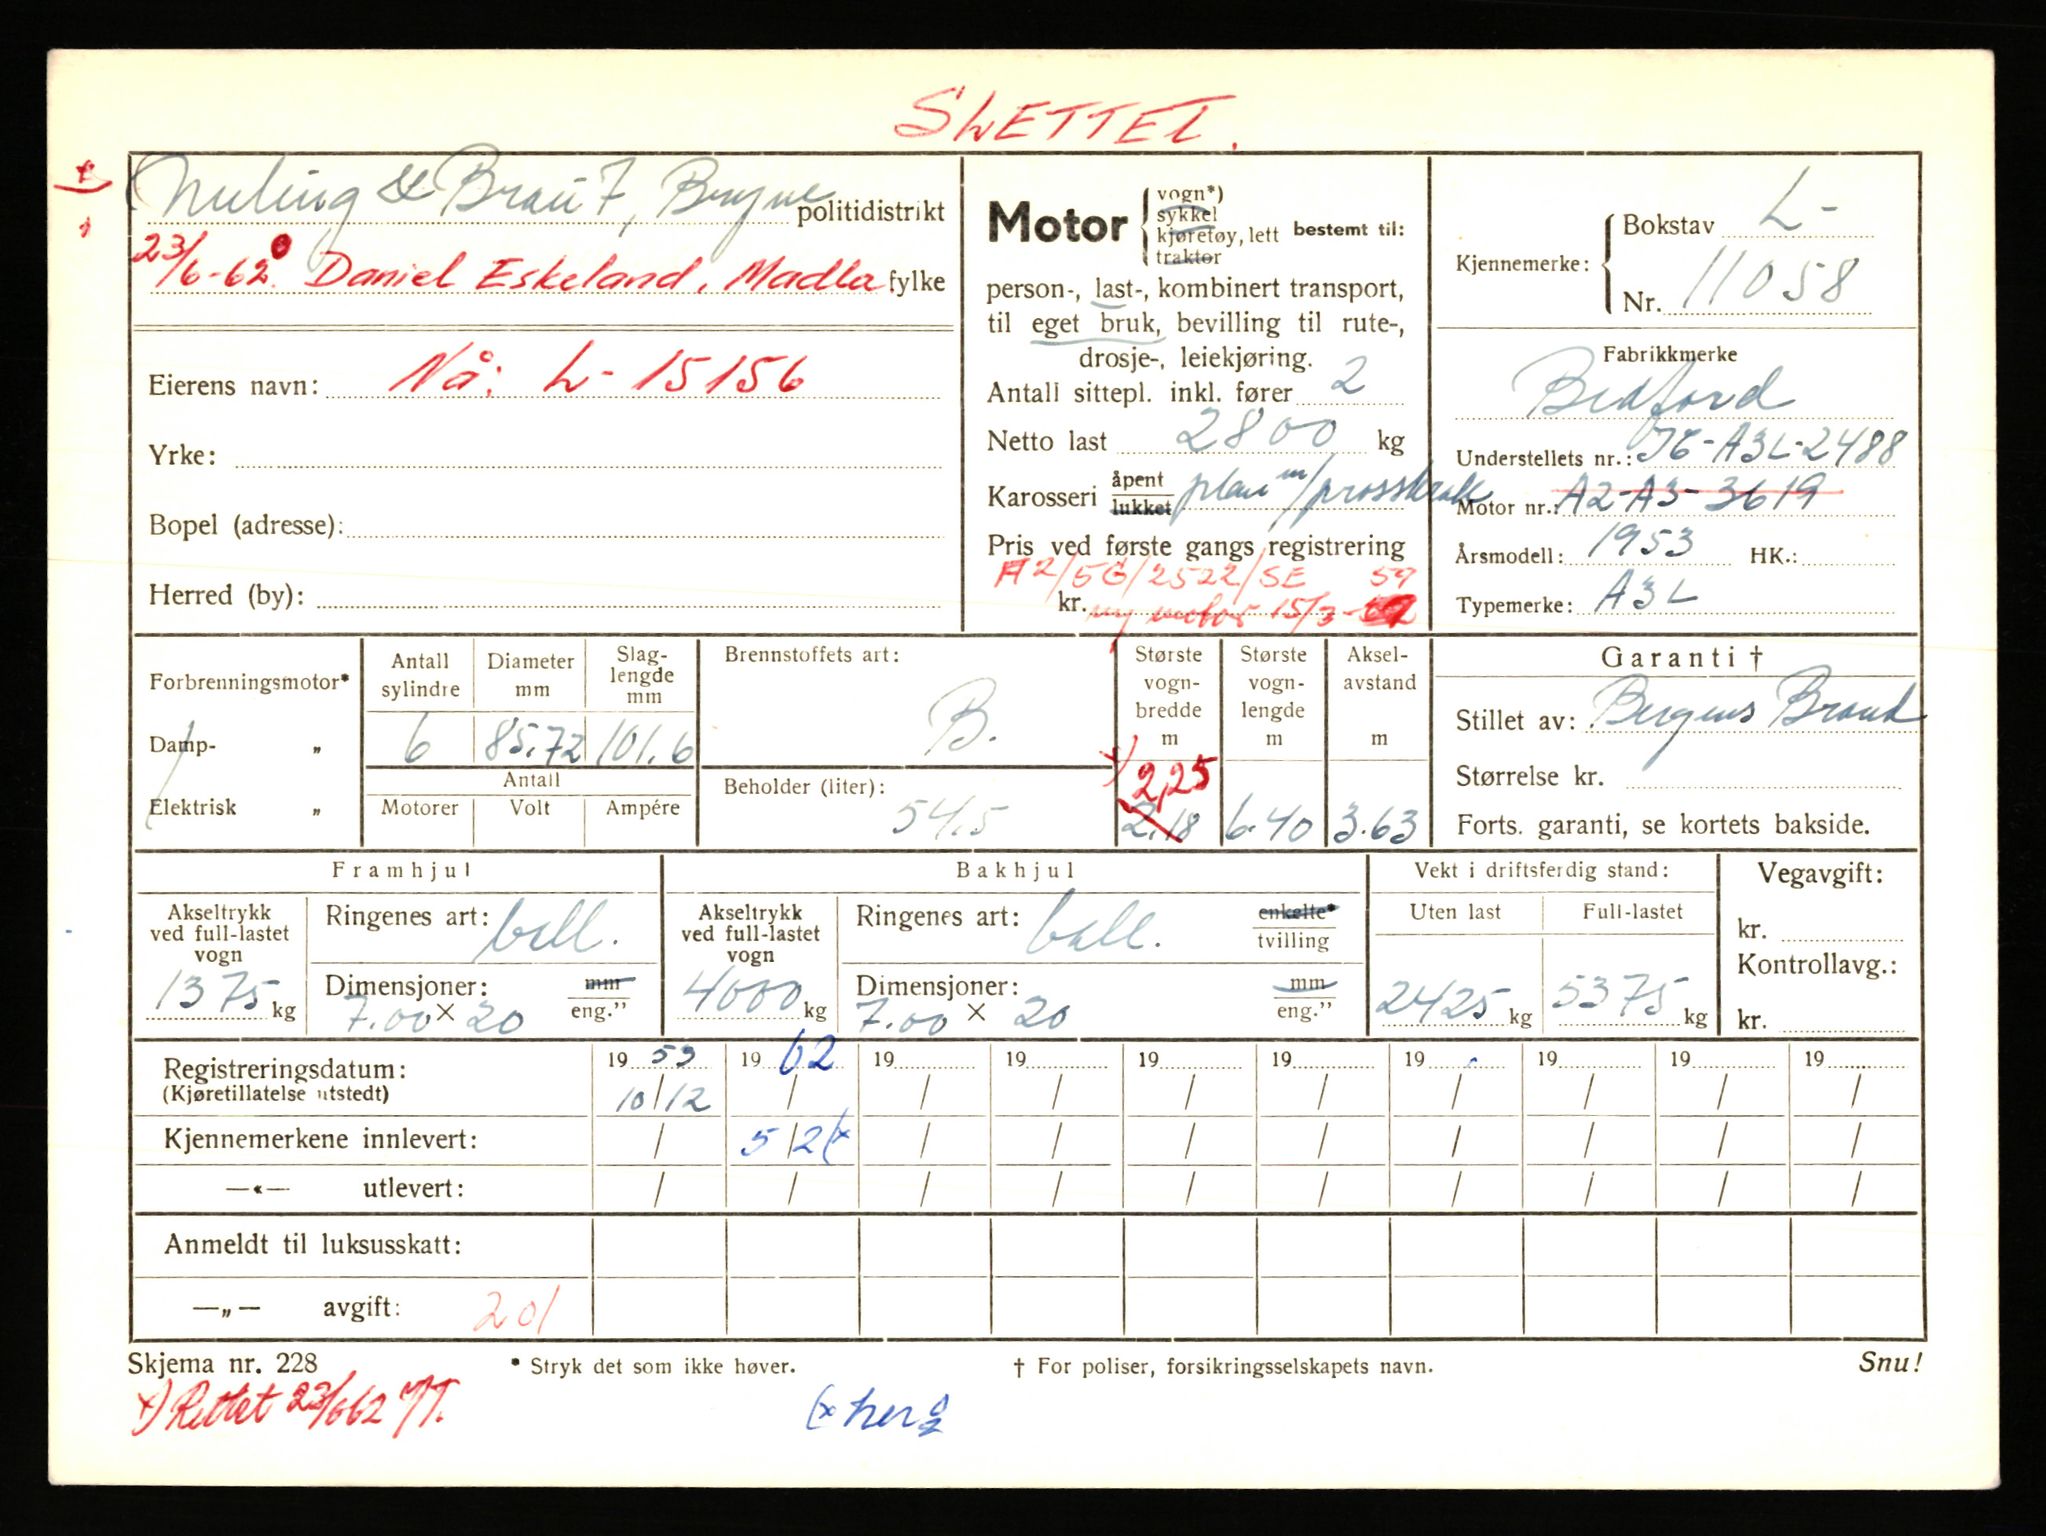 SLETTET.
& Brau 7, Bryne politidistrikt
23/6-62. Daniel Eskeland, Madla fylke
Eierens navn: Nå: L- 15156
Yrke:
Bopel (adresse):
Herred (by):
Motor { vogn*) sykkel kjøretøy, lett traktor bestemt til:
person-, last-, kombinert transport,
til eget bruk, bevilling til rute-,
drosje-, leiekjøring.
Antall sittepl. inkl. fører 2
Netto last 2800 kg
Karosseri åpent lukket plan m/
Pris ved første gangs registrering
A2/5G/2522/SE 59
kr. ny motor 15/3-
Kjennemerke: { Bokstav L-
Nr. 11058
Fabrikkmerke
Bedford
Understellets nr.: -A3L-2488
Motor nr.: A2-A3-3619
Årsmodell: 1953 HK.:
Typemerke: A3L
Forbrenningsmotor*
Damp- „
Elektrisk „
Antall sylindre
6
Diameter mm
85.72
Slag-lengde mm
101.6
Antall
Motorer Volt Ampére
Brennstoffets art:
B.
Beholder (liter):
54,5
Største vogn-bredde m
x) 2,25
2.18
Største vogn-lengde m
6.40
Aksel-avstand m
3.63
Garanti †
Stillet av: Bergens Brand
Størrelse kr.
Forts. garanti, se kortets bakside.
Framhjul
Akseltrykk ved full-lastet vogn
1375 kg
Ringenes art: ball.
Dimensjoner: mm eng.”
7.00 × 20
Bakhjul
Akseltrykk ved full-lastet vogn
4000 kg
Ringenes art: ball. enkelte* tvilling
Dimensjoner: mm eng.”
7.00 × 20
Vekt i driftsferdig stand:
Uten last Full-lastet
2425 kg 5375 kg
Vegavgift:
kr.
Kontrollavg.:
kr.
Registreringsdatum: 19 53 19 62 19 19 19 19 19 19 19 19
(Kjøretillatelse utstedt) 10/12 / / / / / / / / /
Kjennemerkene innlevert: / 5/2(x / / / / / / / /
—«— utlevert: / / / / / / / / / /
Anmeldt til luksusskatt:
—„— avgift: 201
Skjema nr. 228 * Stryk det som ikke høver. † For poliser, forsikringsselskapets navn. Snu!
x) Rettet 23/6 62
(x her